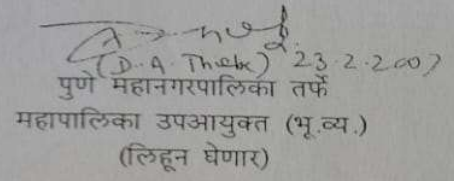 (D. A. Thube) 23.2.2007
पुणे महानगरपालिका तर्फे
महापालिका उपआयुक्त (भू.व्य.)
(लिहून घेणार)